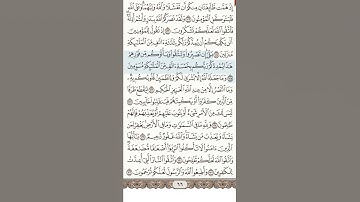 إِذْ هَمَّت طَّآئِفَتَانِ مِنكُمْ أَن تَفْشَلَا وَٱللَّهُ وَلِيُّهُمَا وَعَلَى ٱللَّهِ
فَلْيَتَوَكَّلِ ٱلْمُؤْمِنُونَ ١٢٢ وَلَقَدْ نَصَرَكُمُ ٱللَّهُ بِبَدْرٍ وَأَنتُمْ أَذِلَّةٌ
فَٱتَّقُوا۟ ٱللَّهَ لَعَلَّكُمْ تَشْكُرُونَ ١٢٣ إِذْ تَقُولُ لِلْمُؤْمِنِينَ
أَلَن يَكْفِيَكُمْ أَن يُمِدَّكُمْ رَبُّكُم بِثَلَٰثَةِ ءَالَٰفٍ مِّنَ ٱلْمَلَٰٓئِكَةِ
مُنزَلِينَ ١٢٤ بَلَىٰٓ إِن تَصْبِرُوا۟ وَتَتَّقُوا۟ وَيَأْتُوكُم مِّن فَوْرِهِمْ
هَٰذَا يُمْدِدْكُمْ رَبُّكُم بِخَمْسَةِ ءَالَٰفٍ مِّنَ ٱلْمَلَٰٓئِكَةِ مُسَوِّمِينَ
١٢٥ وَمَا جَعَلَهُ ٱللَّهُ إِلَّا بُشْرَىٰ لَكُمْ وَلِتَطْمَئِنَّ قُلُوبُكُم بِهِۦ
وَمَا ٱلنَّصْرُ إِلَّا مِنْ عِندِ ٱللَّهِ ٱلْعَزِيزِ ٱلْحَكِيمِ ١٢٦ لِيَقْطَعَ طَرَفًا
مِّنَ ٱلَّذِينَ كَفَرُوٓا۟ أَوْ يَكْبِتَهُمْ فَيَنقَلِبُوا۟ خَآئِبِينَ ١٢٧ لَيْسَ لَكَ
مِنَ ٱلْأَمْرِ شَىْءٌ أَوْ يَتُوبَ عَلَيْهِمْ أَوْ يُعَذِّبَهُمْ فَإِنَّهُمْ ظَٰلِمُونَ
١٢٨ وَلِلَّهِ مَا فِى ٱلسَّمَٰوَٰتِ وَمَا فِى ٱلْأَرْضِ يَغْفِرُ لِمَن
يَشَآءُ وَيُعَذِّبُ مَن يَشَآءُ وَٱللَّهُ غَفُورٌ رَّحِيمٌ ١٢٩ يَٰٓأَيُّهَا
ٱلَّذِينَ ءَامَنُوا۟ لَا تَأْكُلُوا۟ ٱلرِّبَوٰٓا۟ أَضْعَٰفًا مُّضَٰعَفَةً
وَٱتَّقُوا۟ ٱللَّهَ لَعَلَّكُمْ تُفْلِحُونَ ١٣٠ وَٱتَّقُوا۟ ٱلنَّارَ ٱلَّتِىٓ أُعِدَّتْ
لِلْكَٰفِرِينَ ١٣١ وَأَطِيعُوا۟ ٱللَّهَ وَٱلرَّسُولَ لَعَلَّكُمْ تُرْحَمُونَ ١٣٢
٦٦